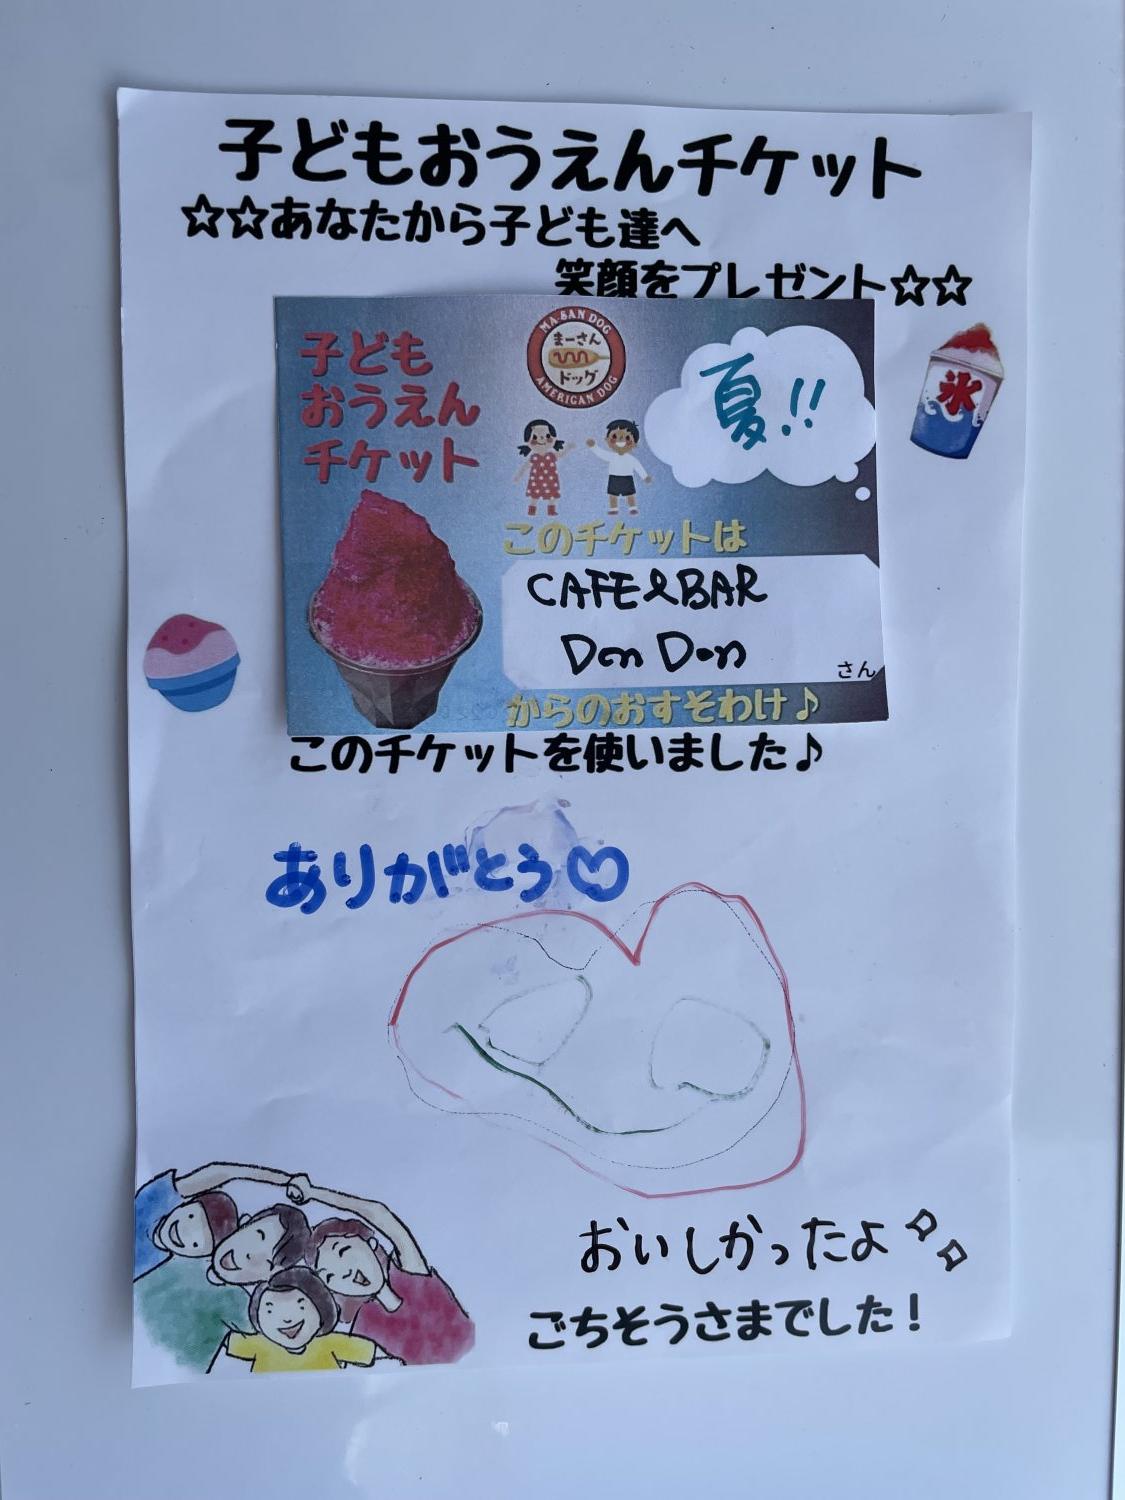 子どもおうえんチケット
☆☆あなたから子ども達へ
笑顔をプレゼント☆☆
子ども
おうえん
チケット
MA-SAN DOG
まーさん
ドッグ
AMERICAN DOG
夏!!
氷
このチケットは
CAFE&BAR
Don Don
さん
からのおすそわけ♪
このチケットを使いました♪
ありがとう♡
おいしかったよ
ごちそうさまでした!